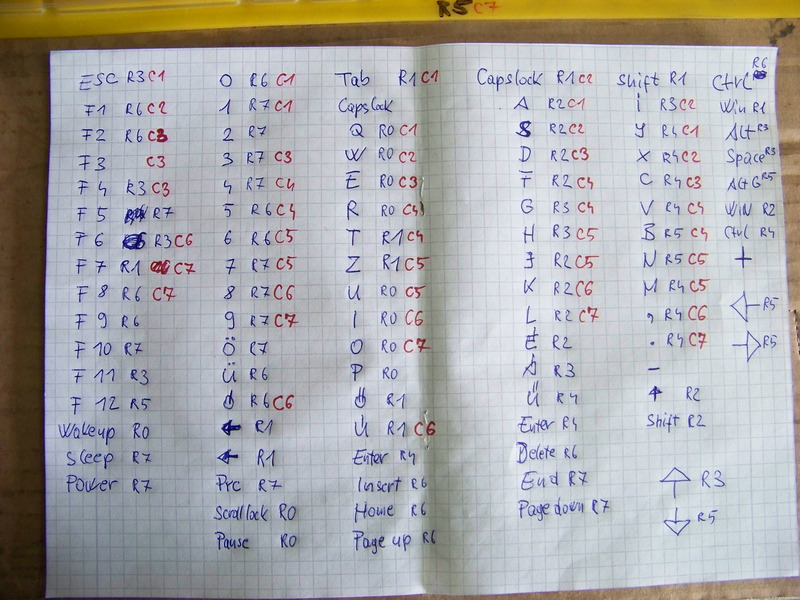 R5 C7
ESC R3 C1
F1 R6 C2
F2 R6 C3
F3 C3
F4 R3 C3
F5 R7
F6 R3 C6
F7 R1 C7
F8 R6 C7
F9 R6
F10 R7
F11 R3
F12 R5
Wakeup R0
Sleep R7
Power R7
0 R6 C1
1 R7 C1
2 R7
3 R7 C3
4 R7 C4
5 R6 C4
6 R6 C5
7 R7 C5
8 R7 C6
9 R7 C7
Ö R7
Ü R6
Ó R6 C6
← R1
← R1
Prc R7
Scrollock R0
Pause R0
Tab R1 C1
Capslock
Q R0 C1
W R0 C2
E R0 C3
R R0 C4
T R1 C4
Z R1 C5
U R0 C5
I R0 C6
O R0 C7
P R0
Ő R1
Ú R1 C6
Enter R4
Insert R6
Home R6
Page up R6
Capslock R1 C2
A R2 C1
S R2 C2
D R2 C3
F R2 C4
G R3 C4
H R3 C5
J R2 C5
K R2 C6
L R2 C7
É R2
Á R3
Ű R4
Enter R4
Delete R6
End R7
Page down R7
Shift R1
Í R3 C2
Y R4 C1
X R4 C2
C R4 C3
V R4 C4
B R5 C4
N R5 C5
M R4 C5
, R4 C6
. R4 C7
-
↑ R2
Shift R2
↑ R3
↓ R5
Ctrl R6
Win R1
Alt R3
Space R3
Alt G R5
Win R2
Ctrl R4
+
← R5
→ R5